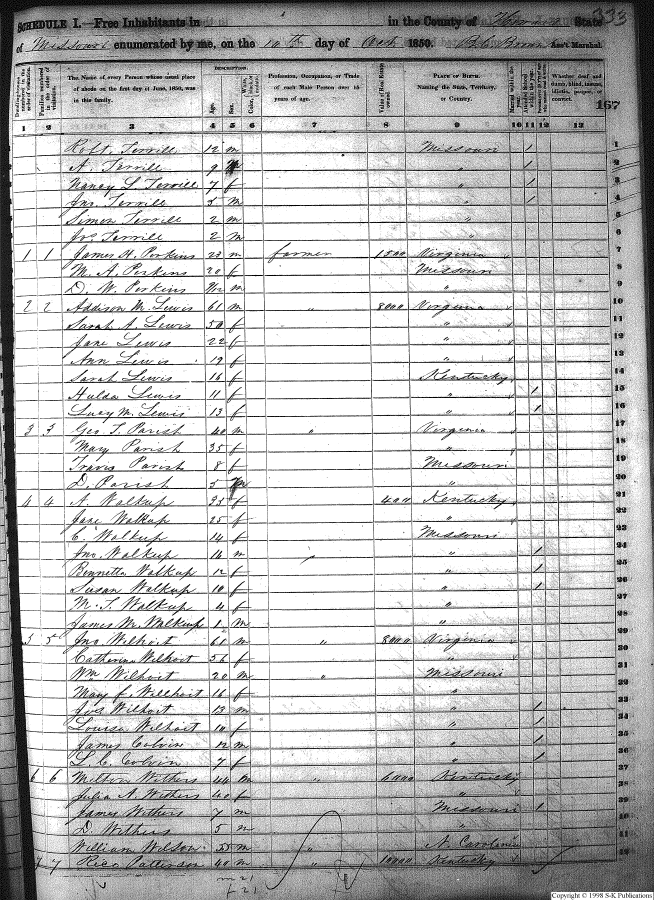 333
SCHEDULE I.—Free Inhabitants in in the County of State
of Missouri enumerated by me, on the 10th day of Oct 1850. Ass't Marshal.
DESCRIPTION.
Dwelling-houses numbered in the order of visitation.
Families numbered in the order of visitation.
The Name of every Person whose usual place of abode on the first day of June, 1850, was in this family.
Age.
Sex.
Profession, Occupation, or Trade of each Male Person over 15 years of age.
Value of Real Estate owned.
PLACE OF BIRTH. Naming the State, Territory, or Country.
Whether deaf and dumb, blind, insane, idiotic, pauper, or convict.
167
1 2 3 4 5 6 7 8 9 10 11 12 13
Robt. Terrill 12 m Missouri 1 1
A Terrill 9 m " 1 2
Nancy L Terrill 7 f " 1 3
Jno Terrill 5 m " 1 4
Simon Terrill 2 m " 5
Jos Terrill 2 m " 6
1 1 James H. Perkins 23 m farmer 1500 Virginia 7
M. A. Perkins 20 f Missouri 8
D. W. Perkins m " 9
2 2 Addison M. Lewis 61 m " 8000 Virginia 10
Sarah A. Lewis 50 f " 11
Jane Lewis 22 f " 12
Ann Lewis 19 f " 13
Sarah Lewis 16 f Kentucky 14
Hulda Lewis 11 f " 1 15
Lucy M. Lewis 13 f " 1 16
3 3 Geo. T. Parish 40 m " Virginia 17
Mary Parish 35 f " 18
Travis Parish 8 f Missouri 19
D. Parish 5 m " 20
4 4 A. Walkup 35 f 400 Kentucky 21
Jane Walkup 25 f " 22
C. Walkup 14 f Missouri 23
Jno. Walkup 16 m " " 1 24
Bennetta Walkup 12 f " 1 25
Susan Walkup 10 f " 1 26
M. T. Walkup 4 f " 27
James M. Walkup 1 m " 28
5 5 Jno. Wilhoit 61 m " 8000 Virginia 29
Catherine Wilhoit 56 f " 30
Wm Wilhoit 20 m " Missouri 31
Mary f. Willhoit 16 f " 32
Jos Wilhoit 13 m " 1 33
Louisa Wilhoit 10 f " 1 34
James Colvin 12 m " 1 35
L. C. Colvin 7 f " 1 36
6 6 Milton Withers 44 m " 6000 Kentucky 37
Julia A. Withers 40 f " 38
James Withers 7 m Missouri 1 39
D. Withers 5 m " 40
William Wilson 55 m " N. Carolina 41
7 7 Rice Patterson 40 m " 10000 Kentucky 42
m 21
f 21
Copyright © 1998 S-K Publications